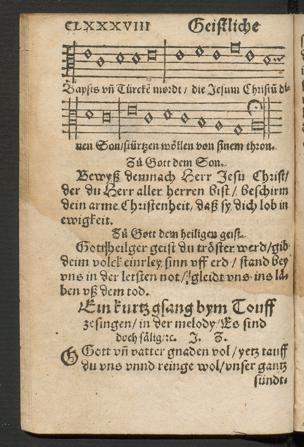 CLXXXVIII Geistliche
Bapsts vñ Türckē mordt / die Jesum Christū di-
nen Son / stürtzen wöllen von sinem thron.
Zů Gott dem Son.
Bewyß demnach Herr Jesu Christ /
der du Herr aller herren bist / beschirm
dein arme Christenheit, daß sy dich lob in
ewigkeit.
Zů Gott dem heiligen geist.
Gott heilger geist du tröster werd / gib
deim volck einrley sinn vff erd / stand bey
vns in der letsten not / gleidt vns ins lä-
ben vß dem tod.
Ein kurtz gsang bym Touff
ze singen / in der melody / Es sind
doch sälig / ꝛc. J. Z.
O Gott vñ vatter gnaden vol / yetz tauff
du vns vnnd reinge wol / vnser gantz
sündt-